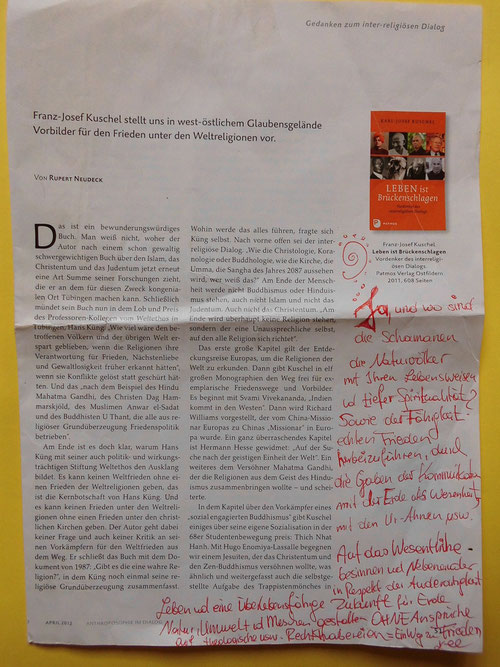 Gedanken zum inter-religiösen Dialog
Franz-Josef Kuschel stellt uns in west-östlichem Glaubensgelände
Vorbilder für den Frieden unter den Weltreligionen vor.
VON RUPERT NEUDECK
KARL-JOSEF KUSCHEL
LEBEN ist
Brückenschlagen
PATMOS
Franz-Josef Kuschel
Leben ist Brückenschlagen
Vordenker des interreligi-
ösen Dialogs
Patmos Verlag Ostfildern
2011, 608 Seiten
Das ist ein bewunderungswürdiges
Buch. Man weiß nicht, woher der
Autor nach einem schon gewaltig
schwergewichtigen Buch über den Islam, das
Christentum und das Judentum jetzt erneut
eine Art Summe seiner Forschungen zieht,
die er an dem für diesen Zweck kongenia-
len Ort Tübingen machen kann. Schließlich
mündet sein Buch nun in dem Lob und Preis
des Professoren-Kollegen vom Weltethos in
Tübingen, Hans Küng: „Wie viel wäre den be-
troffenen Völkern und der übrigen Welt er-
spart geblieben, wenn die Religionen ihre
Verantwortung für Frieden, Nächstenliebe
und Gewaltlosigkeit früher erkannt hätten",
wenn sie Konflikte gelöst statt geschürt hät-
ten. Und das „nach dem Beispiel des Hindu
Mahatma Gandhi, des Christen Dag Ham-
marskjöld, des Muslimen Anwar el-Sadat
und des Buddhisten U Thant, die alle aus re-
ligiöser Grundüberzeugung Friedenspolitik
betrieben"
Am Ende ist es doch klar, warum Hans
Küng mit seiner auch politik- und wirkungs-
trächtigen Stiftung Weltethos den Ausklang
bildet. Es kann keinen Weltfrieden ohne ei-
nen Frieden der Weltreligionen geben, das
ist die Kernbotschaft von Hans Küng. Und
es kann keinen Frieden unter den Weltreligi-
onen ohne einen Frieden unter den christ-
lichen Kirchen geben. Der Autor geht dabei
keiner Frage und auch keiner Kritik an sei-
nen Vorkämpfern für den Weltfrieden aus
dem Weg. Er schließt das Buch mit dem Dok-
ument von 1987: „Gibt es die eine wahre Re-
ligion?", in dem Küng noch einmal seine re-
ligiöse Grundüberzeugung zusammenfasst.
Wohin werde das alles führen, fragte sich
Küng selbst. Nach vorne offen sei der inter-
religiöse Dialog. „Wie die Christologie, Kora-
nologie oder Buddhologie, wie die Kirche, die
Umma, die Sangha des Jahres 2087 aussehen
wird, wer weiß das?" Am Ende der Mensch-
heit werde nicht Buddhismus oder Hindu-
ismus stehen, auch nicht Islam und nicht das
Judentum. Auch nicht das Christentum. „Am
Ende wird überhaupt keine Religion stehen
sondern der eine Unaussprechliche selbst,
auf den alle Religion sich richtet".
Das erste große Kapitel gilt der Entde-
ckungsreise Europas, um die Religionen der
Welt zu erkunden. Dann gibt Kuschel in elf
großen Monographien den Weg frei für ex-
emplarische Friedenswege und Vorbilder.
Es beginnt mit Svami Vivekananda, „Indien
kommt in den Westen". Dann wird Richard
Williams vorgestellt, der vom China-Missio-
nar Europas zu Chinas ‚Missionar' in Euro-
pa wurde. Ein ganz überraschendes Kapitel
ist Hermann Hesse gewidmet: „Auf der Su-
che nach der geistigen Einheit der Welt". Ein
weiteres dem Versöhner Mahatma Gandhi,
der die Religionen aus dem Geist des Hindu-
ismus zusammenbringen wollte – und schei-
terte.
In dem Kapitel über den Vorkämpfer eines
„sozial engagierten Buddhismus" gibt Kuschel
einiges über seine eigene Sozialisation in der
68er Studentenbewegung preis: Thich Nhat
Hanh. Mit Hugo Enomiya-Lassalle begegnen
wir einem Jesuiten, der das Christentum und
den Zen-Buddhismus versöhnen wollte, was
ähnlich und weitergefasst auch die selbstge-
stellte Aufgabe des Trappistenmönches in
Ja, und wo sind
die Schamanen
der Naturvölker
mit Ihren Lebensweisen
und tiefer Spiritualität?
Sowie der Fähigkeit
echten Frieden
herbeizuführen, durch
die Gaben der Kommunikation
mit der Erde als Wesenheit,
mit den Ur-Ahnen usw.
Auf das Wesentliche
besinnen und Nebeneinander
in Respekt der Andersartigkeit
Leben und eine Überlebensfähige Zukunft für Erde
Natur, Umwelt und Menschen gestalten OHNE Ansprüche
auf theologische usw. Rechthabereien = Einweg zum Frieden
APRIL 2012